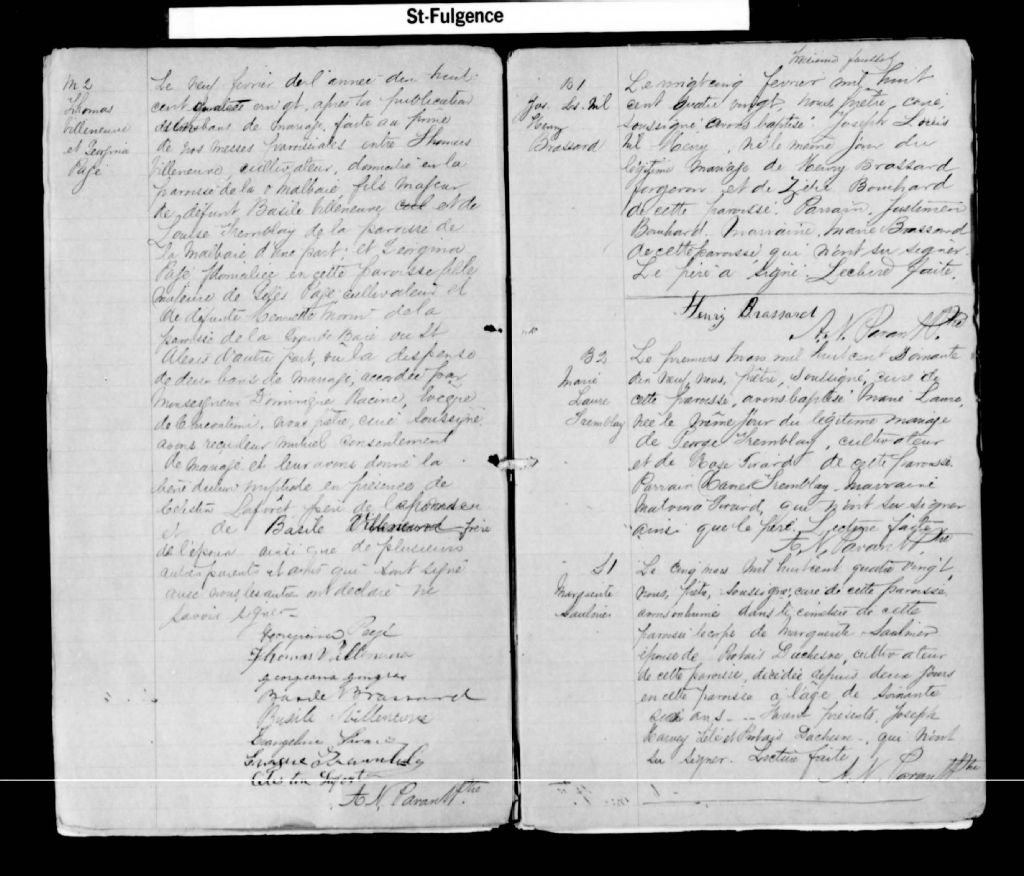 St-Fulgence
M 2
Thomas
Villeneuve
et Georgina
Pagé
Le neuf fevrier de l'annee dix huit
cent quatre vingt, après la publication
de bans de mariage, faite au prone
de nos messes paroissiales entre Thomas
Villeneuve, cultivateur, domicilié en la
paroisse de la Malbaie, fils majeur
de défunt Basile Villeneuve et de
Louise Tremblay de la paroisse de
la Malbaie d'une part; et Georgina
Pagé domiciliée en cette paroisse fille
majeure de Pagé cultivateur et
de défunte Henriette Morin de la
paroisse de la Grande Baie ou St
Alexis d'autre part, vu la dispense
de deux bans de mariage, accordée par
Monseigneur Dominique Racine, évêque
de Chicoutimi, nous prêtre, curé soussigné,
avons reçu leur mutuel consentement
de mariage et leur avons donné la
bénédiction nuptiale en présence de
Célestin Laforêt père de
et de Basile Villeneuve frère
de l'époux ainsi que de plusieurs
autres parents et amis qui sont signé
avec nous, les autres ont declaré ne
savoir signer
Georgina Pagé
Thomas Villeneuve
Basile Brassard
Basile Villeneuve
Evangeline
A. N. Parant Ptre
B 1
Jos. Ls. Nil
Henry
Brassard
Le vingt cinq fevrier mil huit
cent quatre vingt, nous prêtre, curé,
soussigné avons baptisé Joseph Louis
Nil Henry, né le même jour du
légitime mariage de Henry Brassard
forgeron et de Zélie Bouchard
de cette paroisse. Parrain Justinien
Bouchard. Marraine, Marie Brassard
de cette paroisse qui n'ont su signer.
Le père a signé. Lecture faite.
Henry Brassard
A. N. Parant Ptre
B 2
Marie
Laure
Tremblay
Le premiers mars mil huit cent soixante
dix neuf, nous, prêtre, soussigné, curé de
cette paroisse, avons baptisé Marie Laure,
née le même jour du légitime mariage
de George Tremblay, cultivateur
et de Rose Girard de cette paroisse.
Parrain Tremblay, Marraine
Malvina Girard, qui n'ont su signer
ainsi que le père. Lecture faite
A. N. Parant Ptre
S 1
Marguerite
Saulnier
Le cinq mars mil huit cent quatre vingt,
nous, prêtre, soussigné, curé de cette paroisse,
avons inhumé dans le cimetière de cette
paroisse le corps de Marguerite Saulnier
épouse de Duchesne, cultivateur
de cette paroisse, décédée depuis deux jours
en cette paroisse à l'âge de soixante
ans - - - Furent présents, Joseph
Harvey et Duchesne, qui n'ont
su signer. Lecture faite
A. N. Parant Ptre